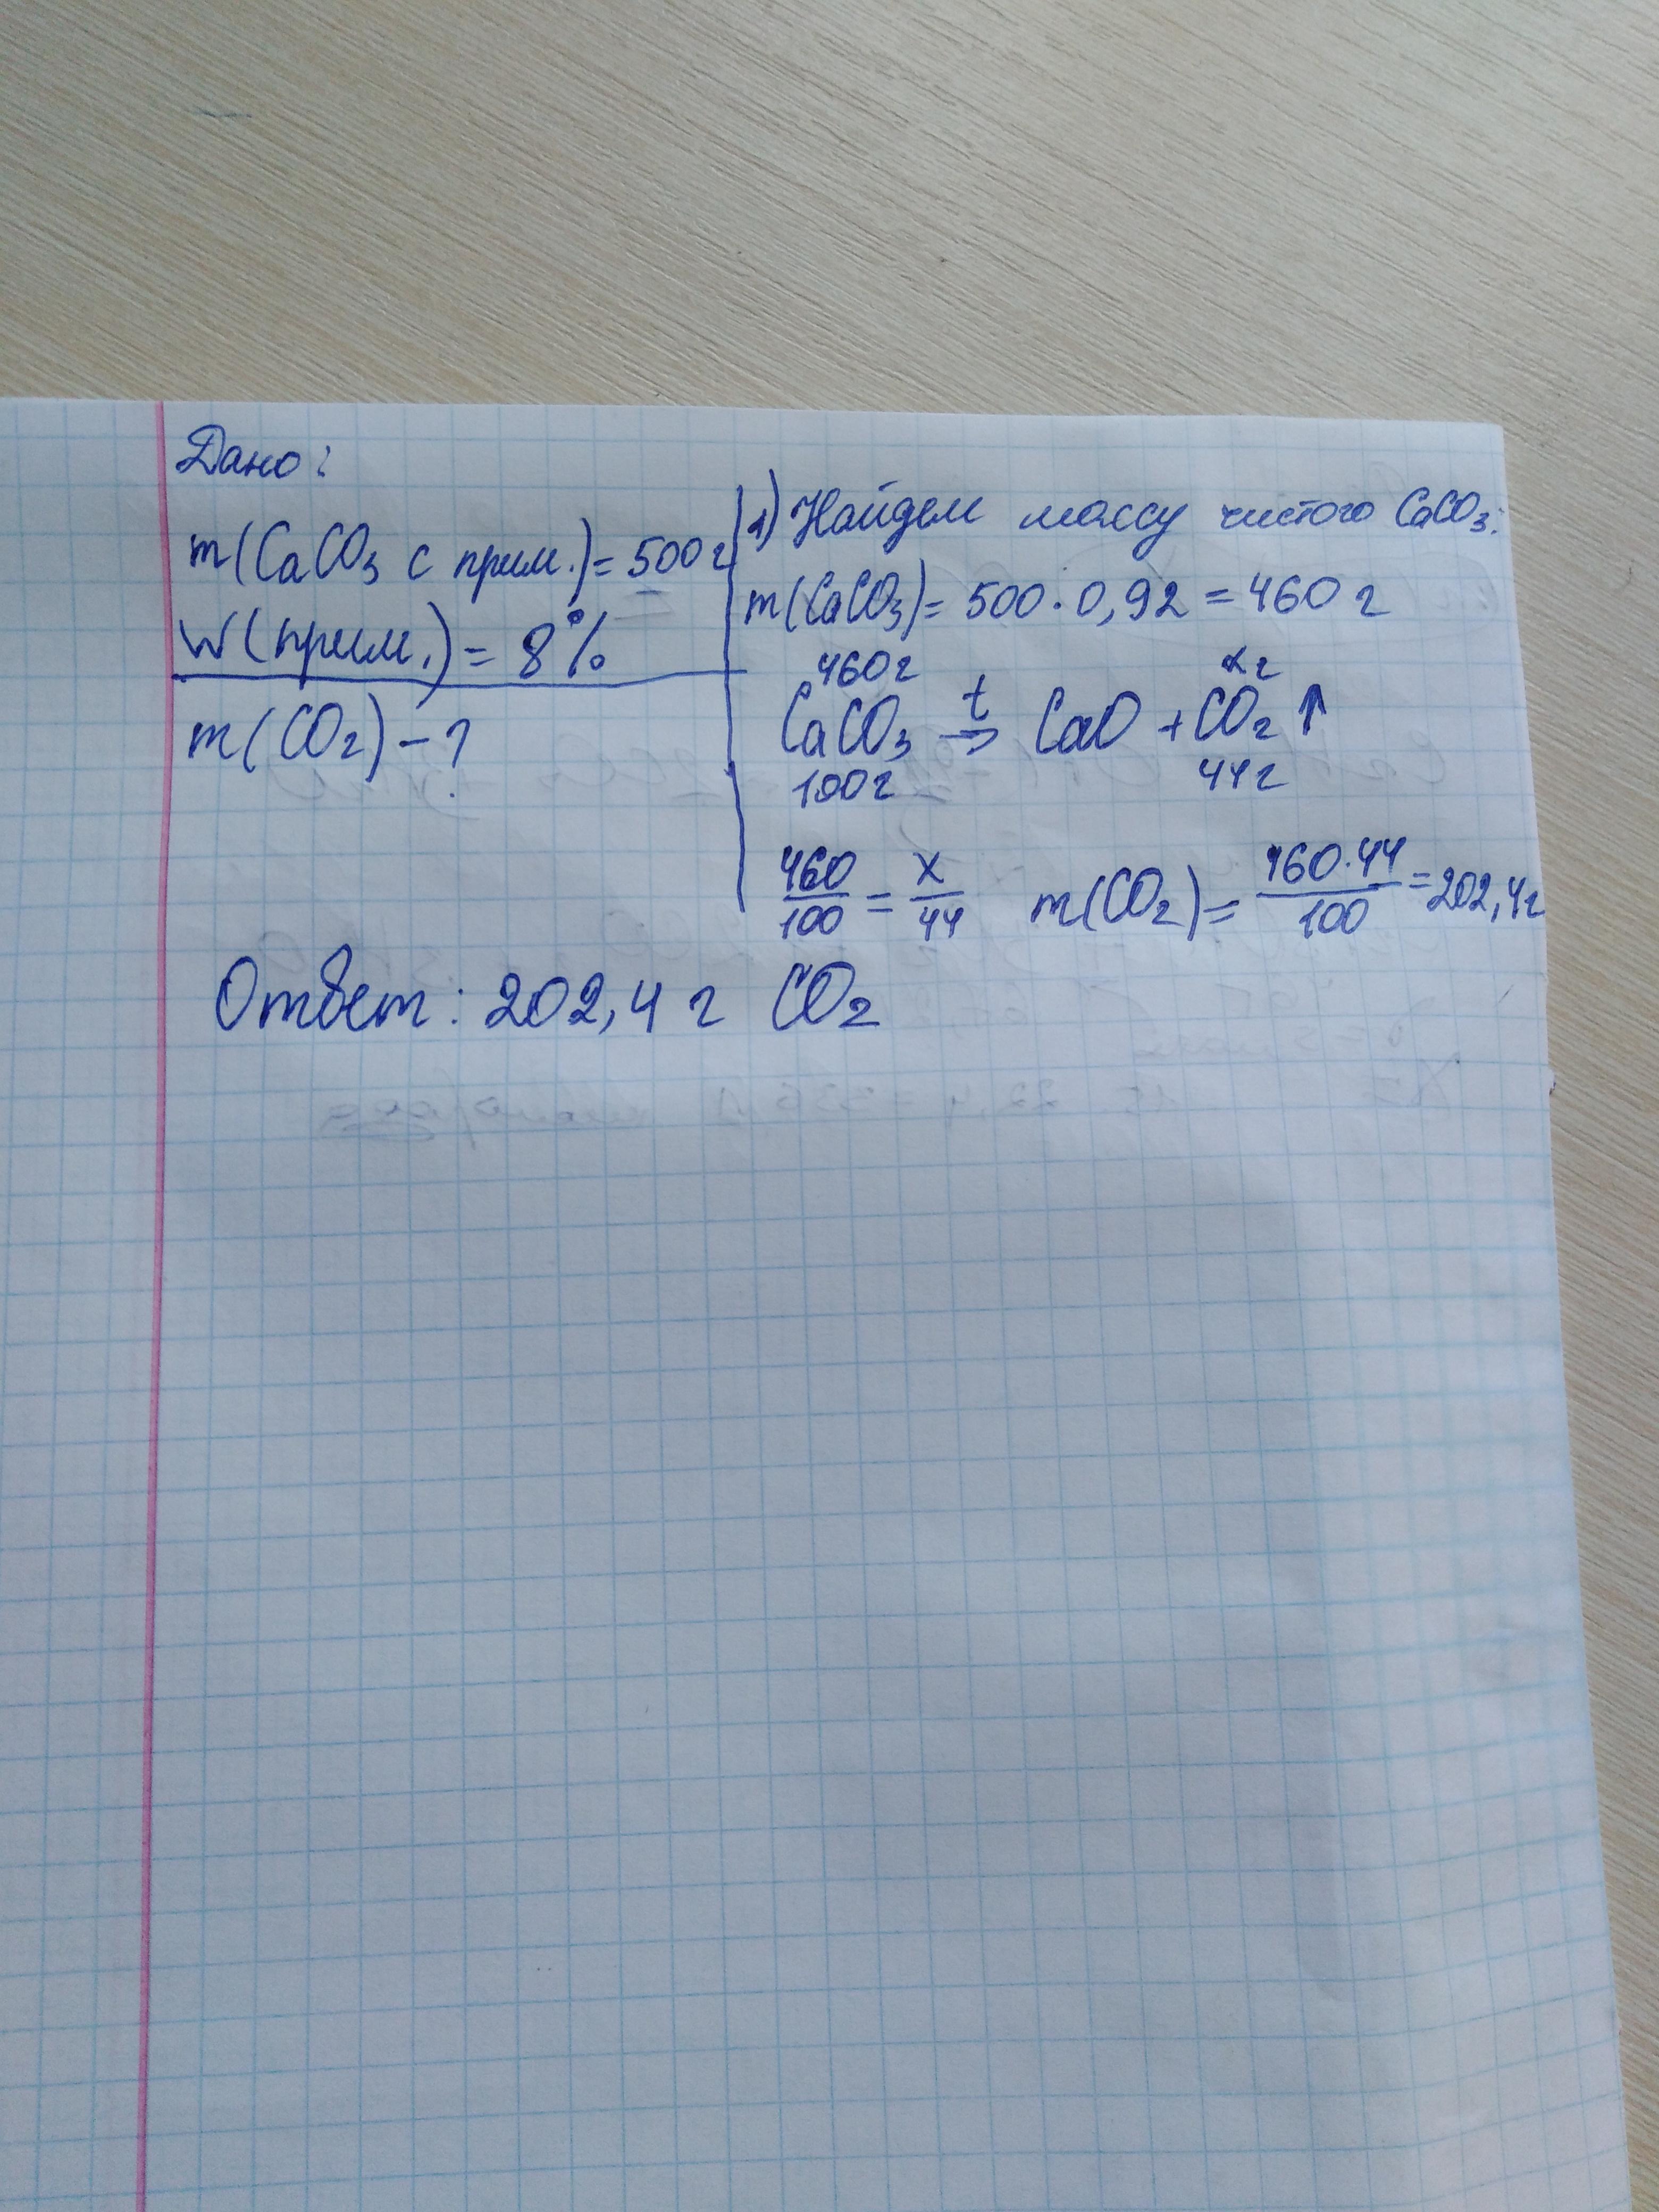 Дано:
m(CaCO₃ с прим.)= 500 г
W(прим.)= 8%
m(CO₂) - ?
1) Найдем массу чистого CaCO₃:
m(CaCO₃)= 500·0,92 = 460 г
460 г x г
CaCO₃ t→ CaO + CO₂ ↑
100 г 44 г
460/100 = x/44 m(CO₂)= 460·44/100 = 202,4 г
Ответ: 202,4 г CO₂